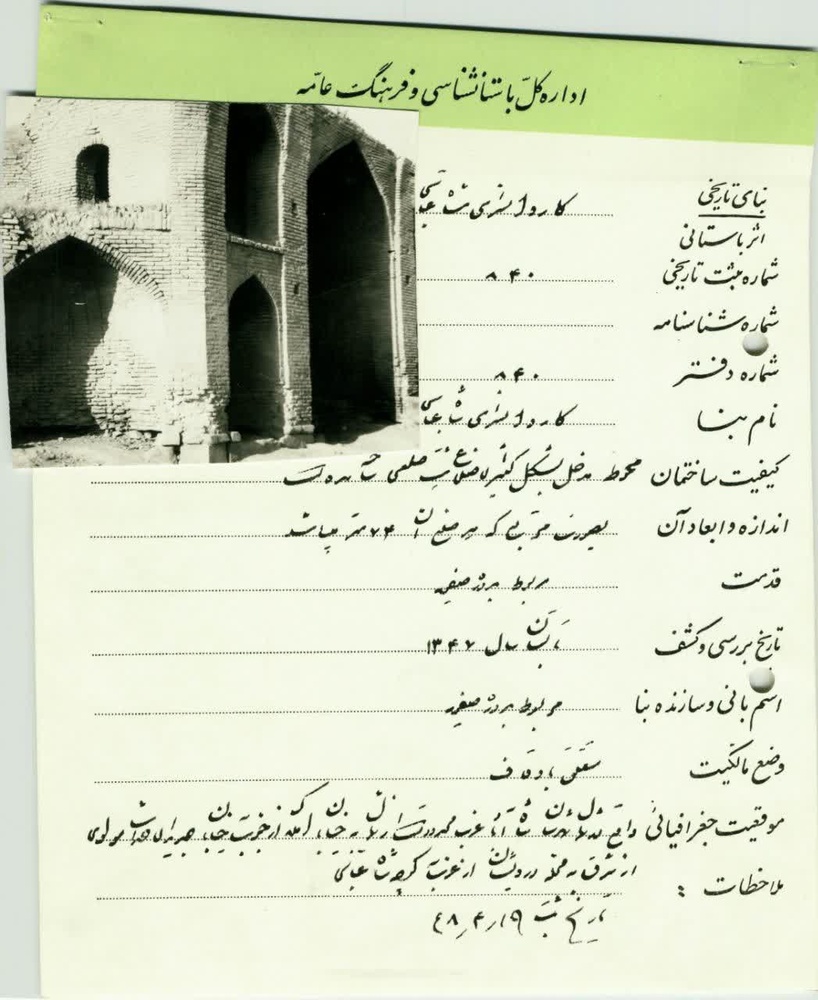 اداره کل باستانشناسی و فرهنگ عامه
بنای تاریخی کاروانسرای شاه عباسی
اثر باستانی
شماره ثبت تاریخی ۸۴۰
شماره شناسنامه
شماره دفتر ۸۴۰
نام بنا کاروانسرای شاه عباسی
کیفیت ساختمان محوطه داخل بشکل کثیرالاضلاع ضلعی
اندازه و ابعاد آن بصورت مربعی که هر ضلع آن ۷۴ متر میباشد
قدمت مربوط بدوره صفویه
تاریخ بررسی و کشف آبان سال ۱۳۴۷
اسم بانی و سازنده بنا مربوط بدوره صفویه
وضع مالکیت متعلق باوقاف
موقعیت جغرافیائی واقع در از شمال به خیابان از جنوب
ملاحظات : از شرق به محله درویشان از غرب کوچه شاه عباسی
تاریخ ثبت ۴۸٫۴٫۱۹